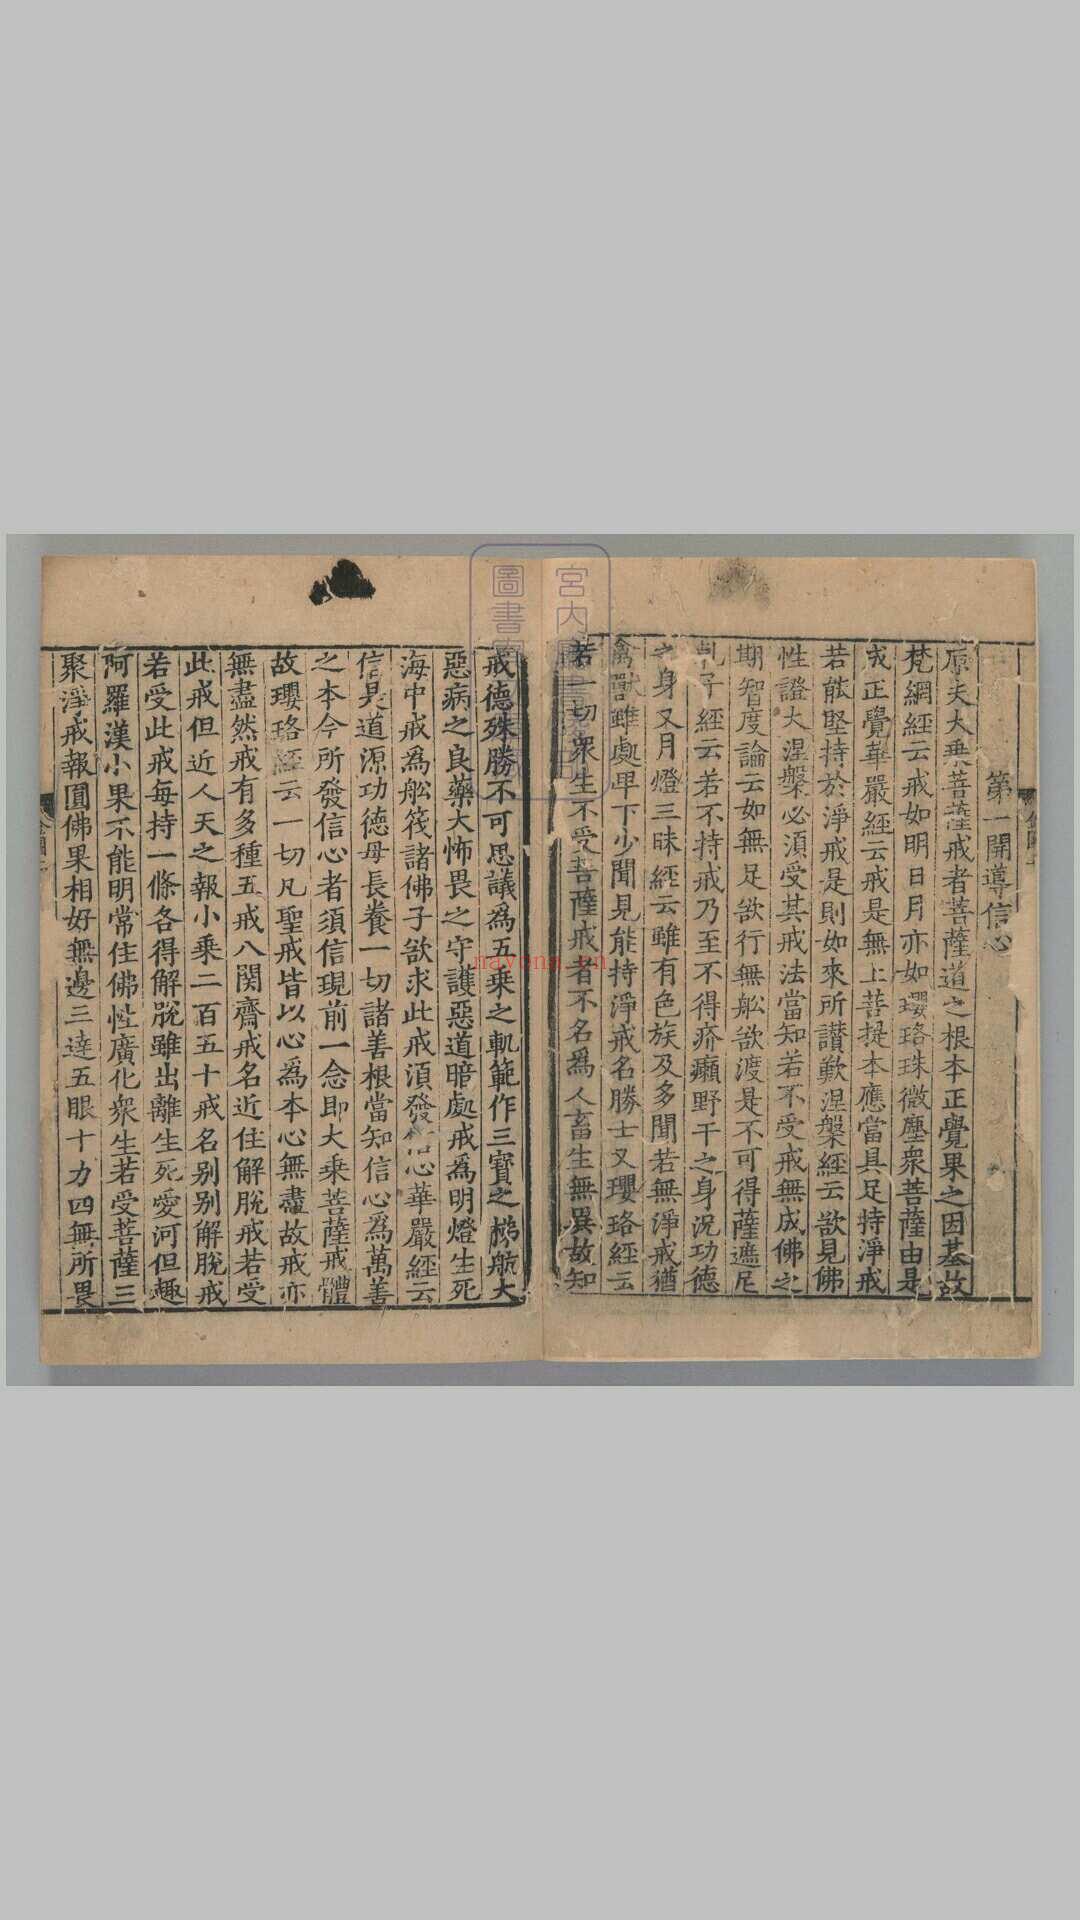 第一開導信心
原夫大乗菩薩戒者菩薩道之根本正覺果之因基故
梵綱經云戒如明日月亦如瓔珞珠微塵衆菩薩由是
成正覺華嚴經云戒是無上菩提本應當具足持淨戒
若能堅持於淨戒是則如來所讃歎涅槃經云欲見佛
性證大涅槃必須受其戒法當知若不受戒無成佛之
期智度論云如無足欲行無舩欲渡是不可得薩遮尼
乹子經云若不持戒乃至不得疥癩野干之身況功德
之身又月燈三昧經云雖有色族及多聞若無淨戒猶
禽獸雖處卑下少聞見能持淨戒名勝士又瓔珞經云
若一切衆生不受菩薩戒者不名爲人畜生無異故知
戒德殊勝不可思議爲五乗之軌範作三寳之舟航大
惡病之良藥大怖畏之守護惡道暗處戒爲明燈生死
海中戒爲舩筏諸佛子欲求此戒須發信心華嚴經云
信是道源功德母長養一切諸善根當知信心爲萬善
之本今所發信心者須信現前一念即大乗菩薩戒體
故瓔珞經云一切凡聖戒皆以心爲本心無盡故戒亦
無盡然戒有多種五戒八関齋戒名近住解脫戒若受
此戒但近人天之報小乗二百五十戒名别别解脫戒
若受此戒每持一條各得解脫雖出離生死愛河但趣
阿羅漢小果不能明常住佛性廣化衆生若受菩薩三
聚淨戒報圓佛果相好無邊三達五眼十力四無所畏
nayona.cn